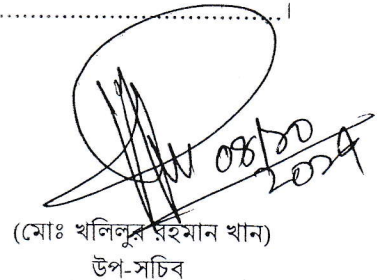 ০৪/১০
২০১৭
(মোঃ খলিলুর রহমান খান)
উপ-সচিব